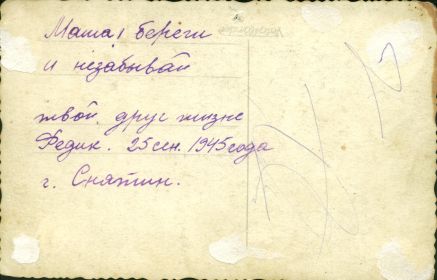 Маша! береги
и незабывай
твой друг жизни
Федик. 25 сен. 1945 года
г. Снятин.